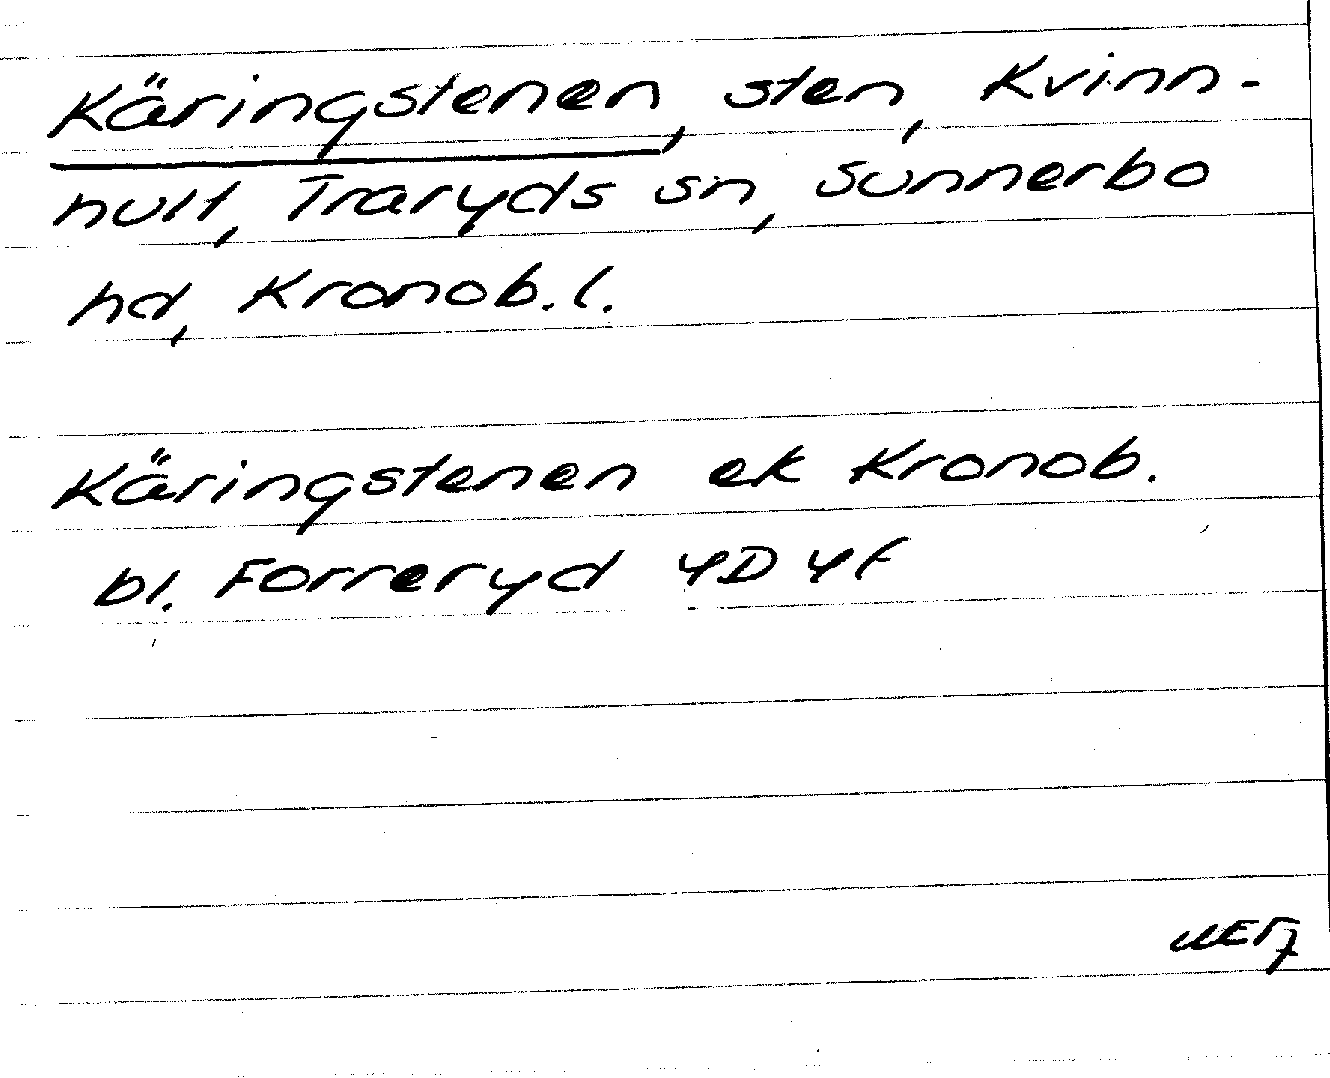 Käringstenen, sten, Kvinn-
hult, Traryds sn, Sunnerbo
hd, Kronob. l.
Käringstenen ek Kronob.
bl. Forreryd 4D 4f